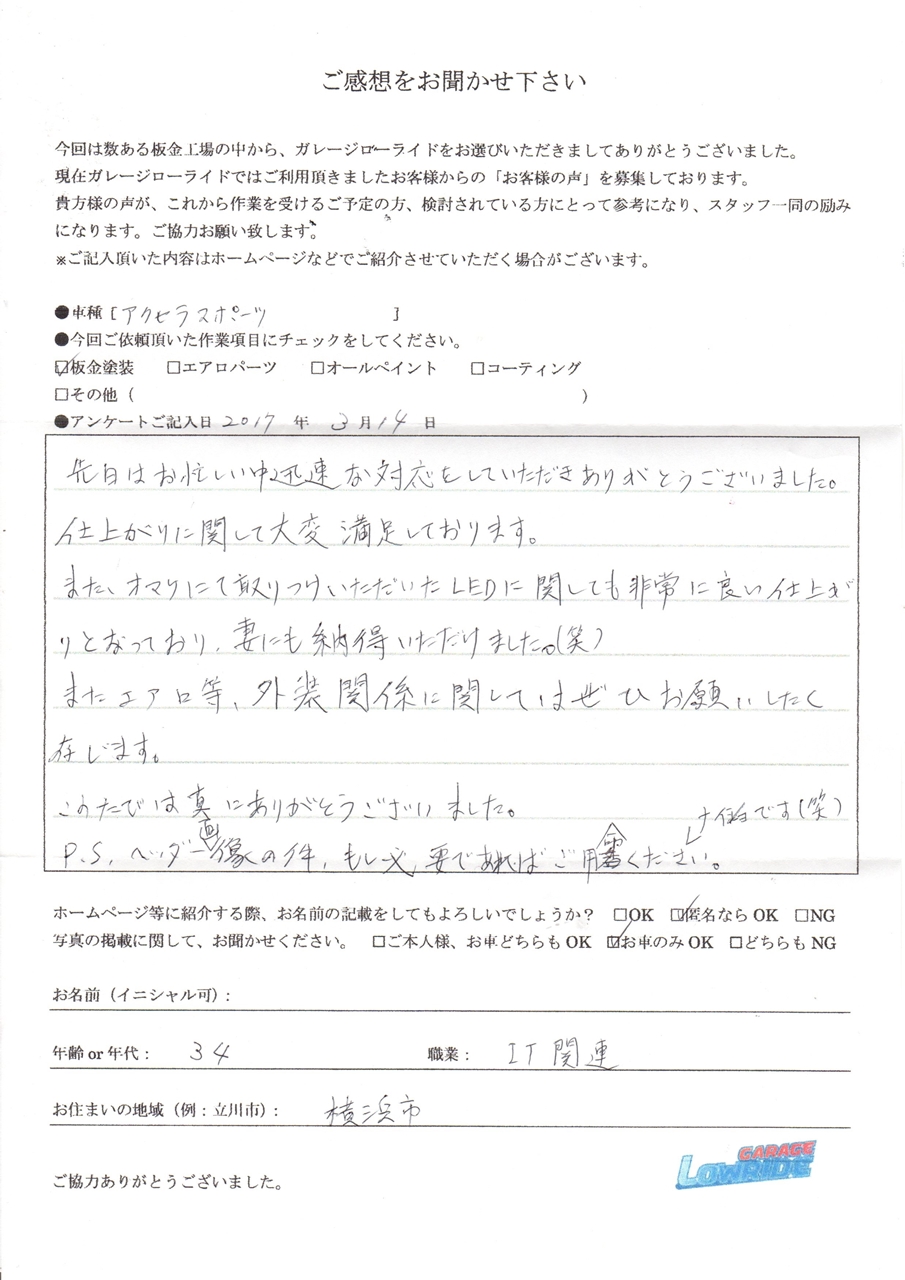 ご感想をお聞かせ下さい
今回は数ある板金工場の中から、ガレージローライドをお選びいただきましてありがとうございました。
現在ガレージローライドではご利用頂きましたお客様からの「お客様の声」を募集しております。
貴方様の声が、これから作業を受けるご予定の方、検討されている方にとって参考になり、スタッフ一同の励み
になります。ご協力お願い致します。
※ご記入頂いた内容はホームページなどでご紹介させていただく場合がございます。
●車種 [ アクセラスポーツ ]
●今回ご依頼頂いた作業項目にチェックをしてください。
☑板金塗装 □エアロパーツ □オールペイント □コーティング
□その他 ( )
●アンケートご記入日 2017 年 3 月 14 日
先日はお忙しい中迅速な対応をしていただきありがとうございました。
仕上がりに関して大変満足しております。
また、オマケにて取りつけいただいたLEDに関しても非常に良い仕上が
りとなっており、妻にも納得いただけました。(笑)
またエアロ等、外装関係に関してはぜひお願いしたく
存じます。
このたびは真にありがとうございました。
P.S. ヘッダー画像の件、もし必要であればご用命ください。
です(笑)
ホームページ等に紹介する際、お名前の記載をしてもよろしいでしょうか? □OK ☑匿名なら OK □NG
写真の掲載に関して、お聞かせください。 □ご本人様、お車どちらも OK ☑お車のみ OK □どちらも NG
お名前（イニシャル可）:
年齢 or 年代: 34 職業: IT関連
お住まいの地域（例：立川市）: 横浜市
ご協力ありがとうございました。
GARAGE
LOWRIDE